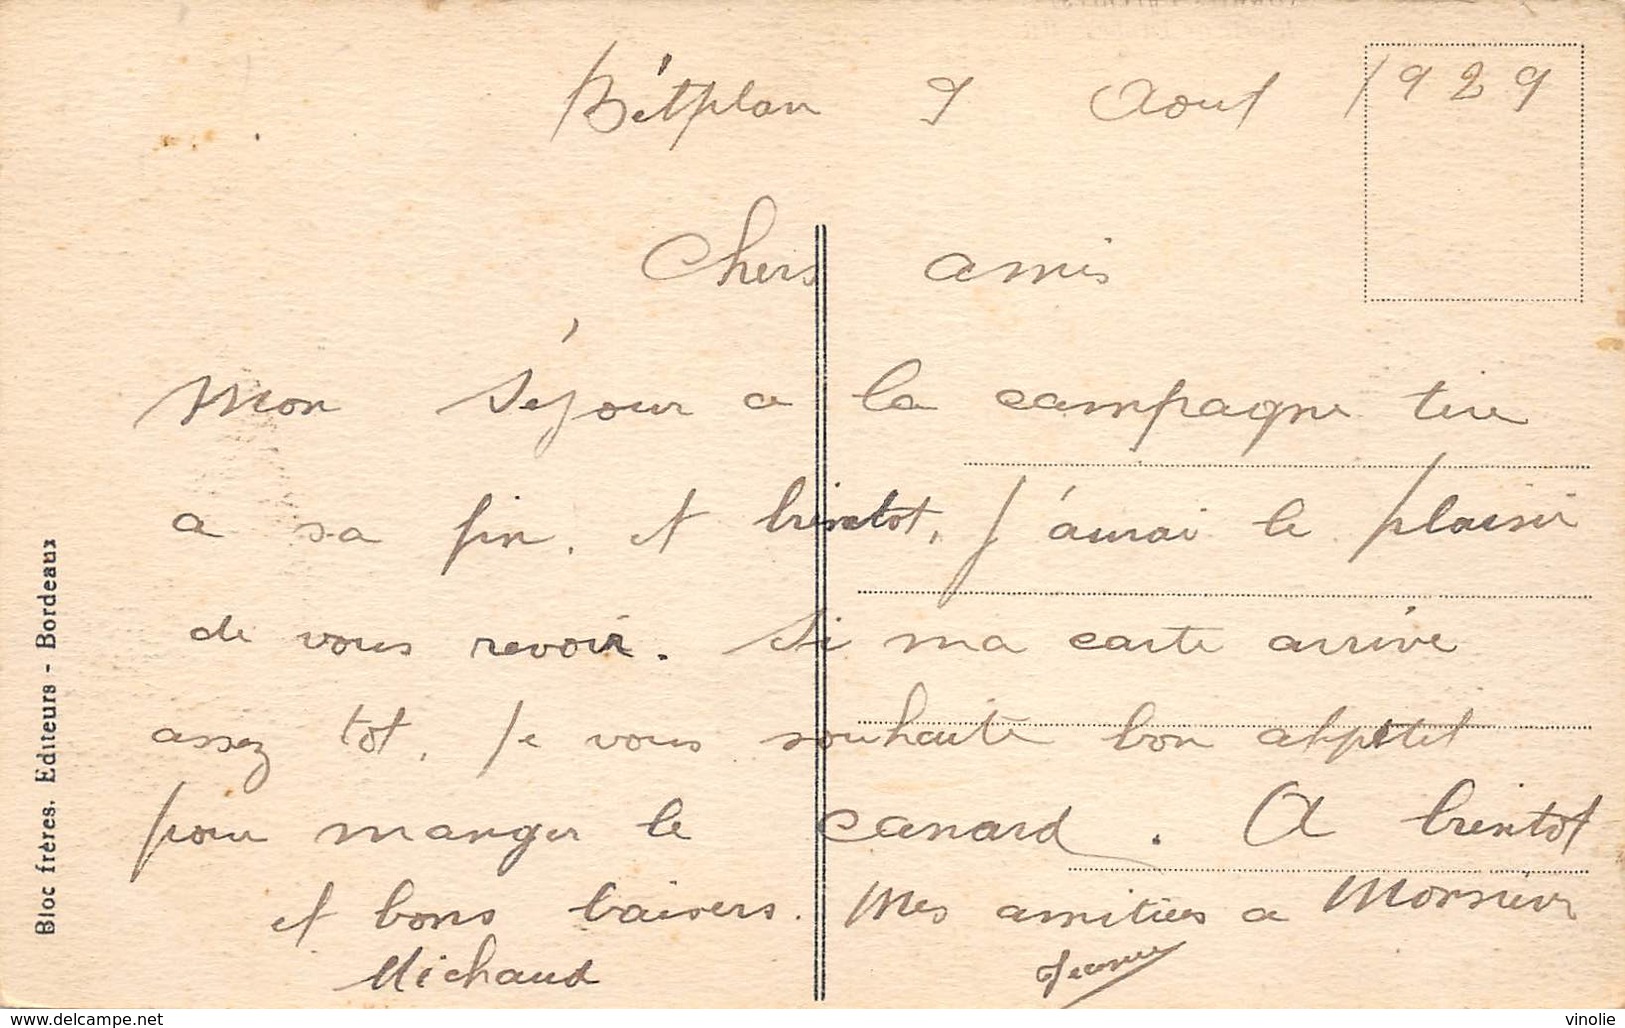 Bétplan 9 Aout 1929
Chers amis
Mon séjour a la campagne tire
a sa fin. et bientot, j'aurai le plaisir
de vous revoir. Si ma carte arrive
assez tot, je vous souhaite bon appetit
pour manger le canard. A bientot
et bons baisers. Mes amitiées a Monsieur
Michaud
Jeanne
Bloc frères. Editeurs - Bordeaux
http://www.delcampe.net
vinolie